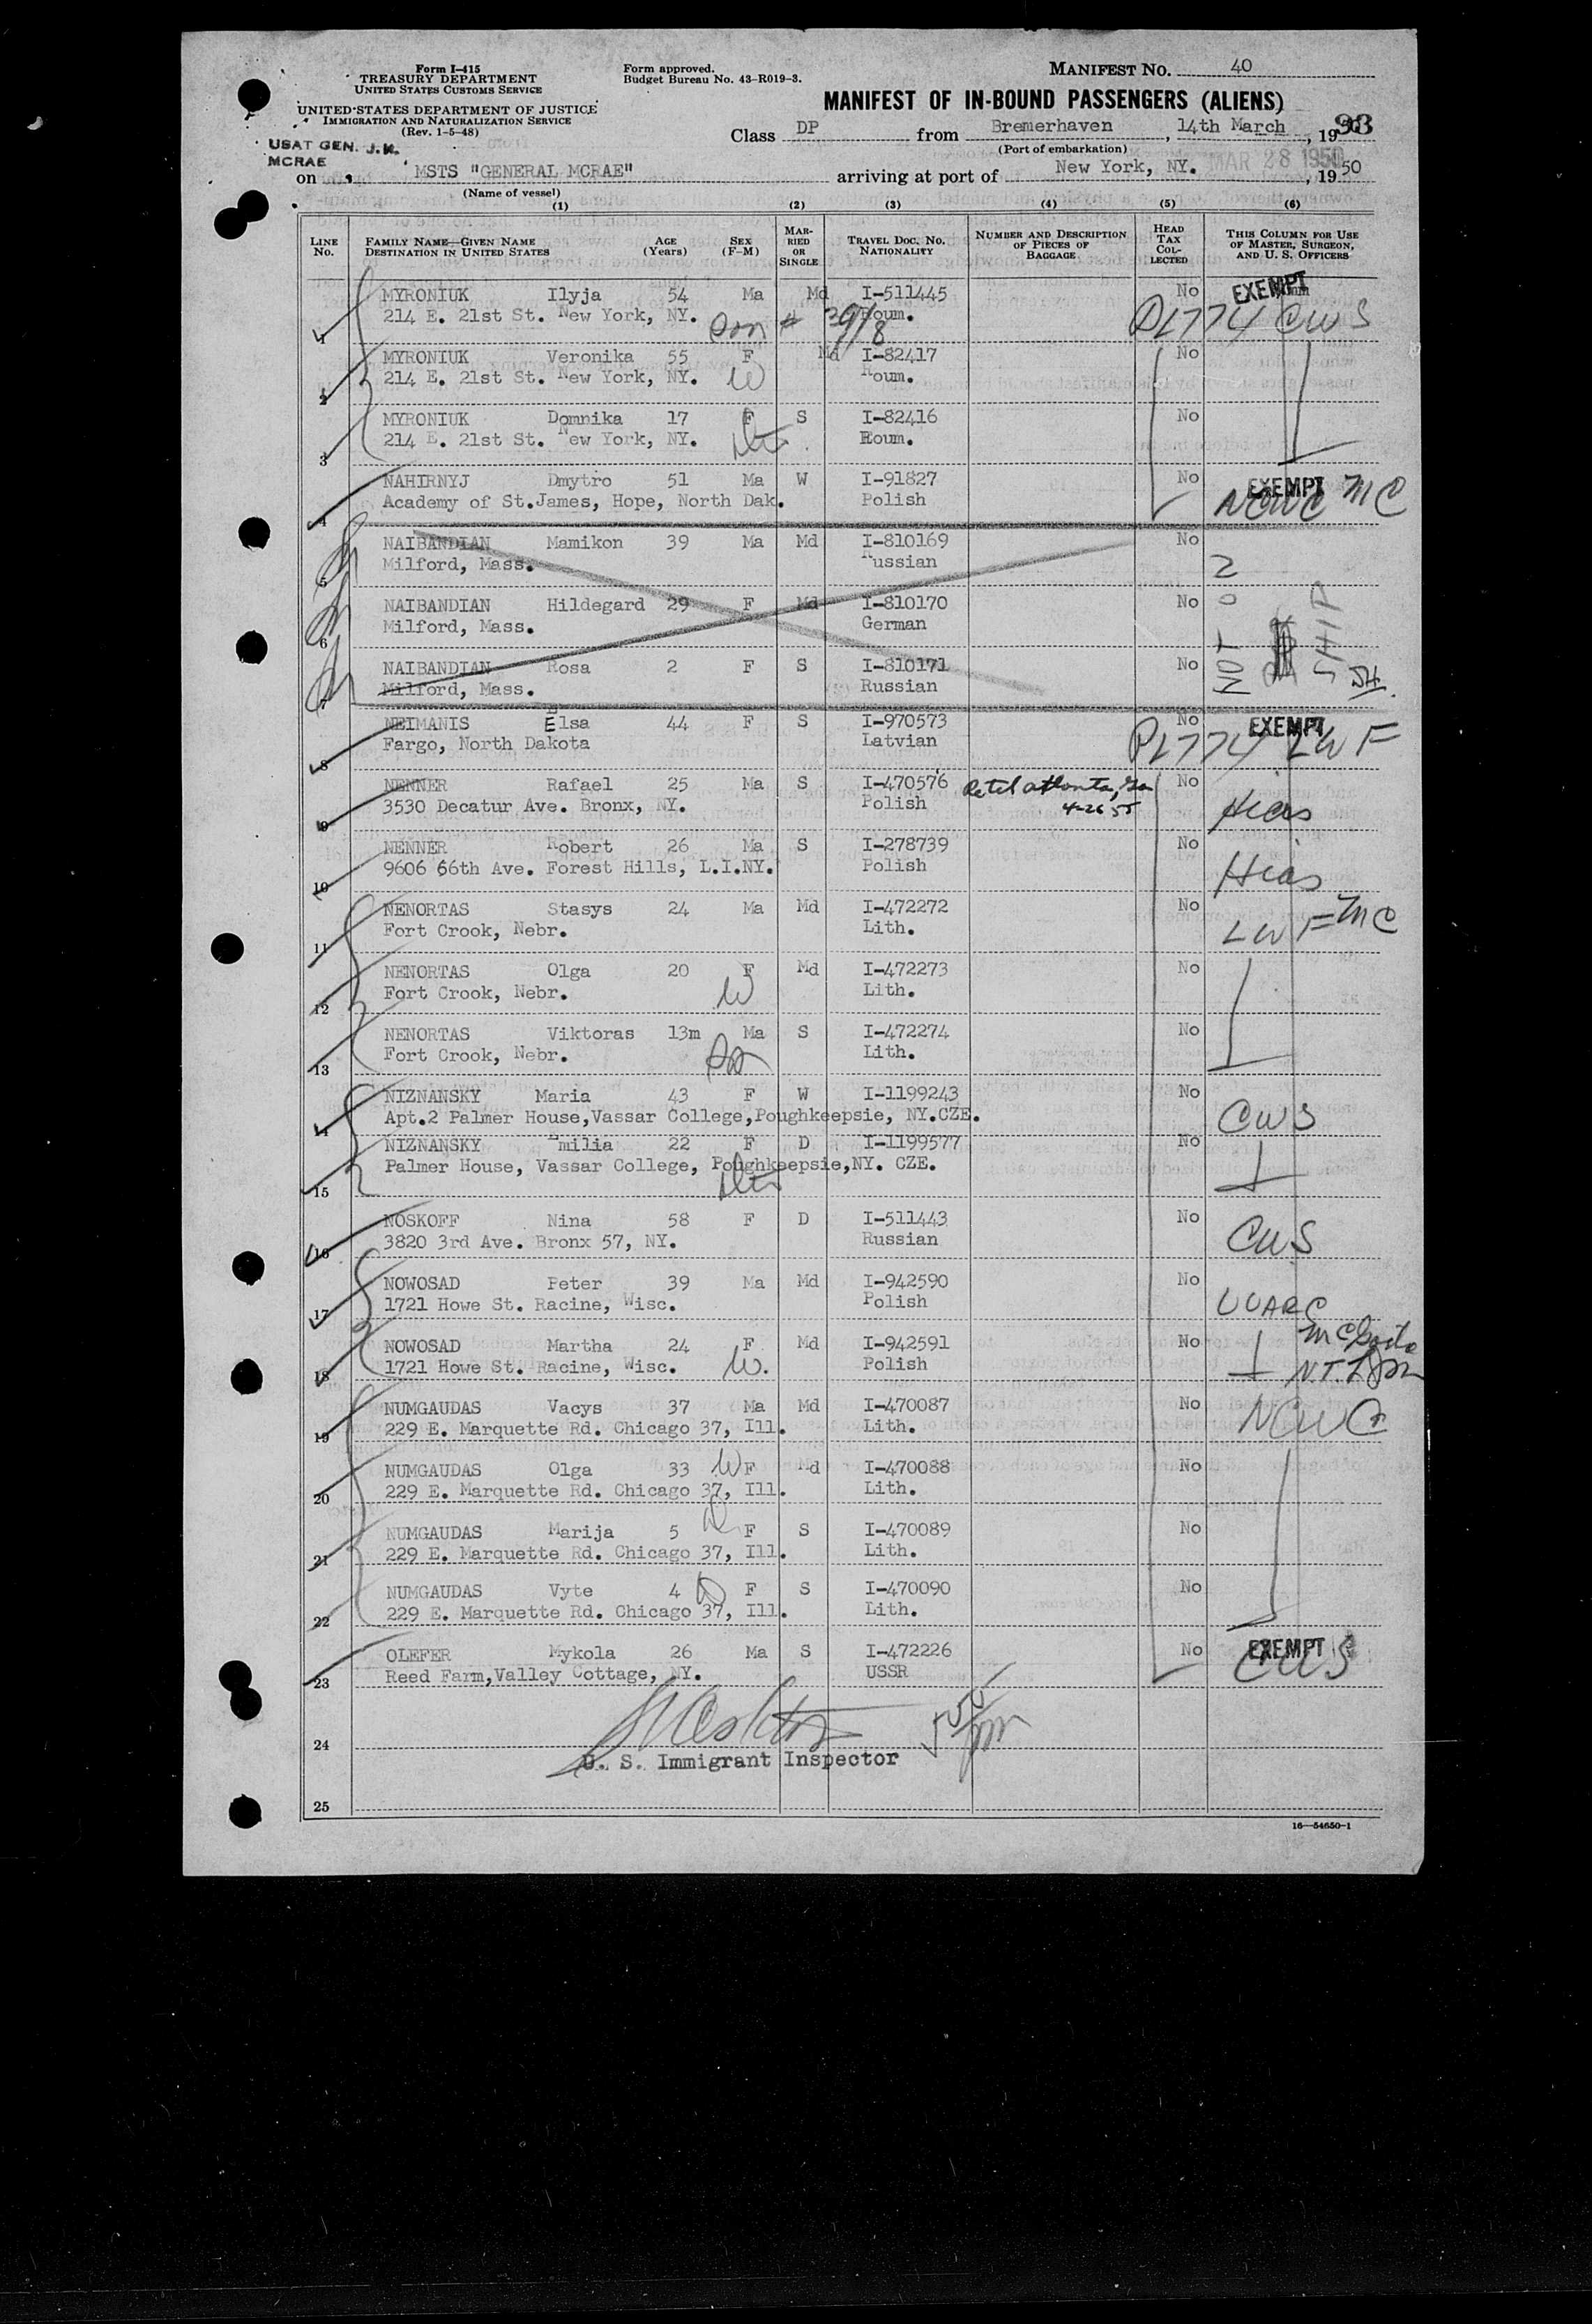 Form I-415
TREASURY DEPARTMENT
UNITED STATES CUSTOMS SERVICE
UNITED STATES DEPARTMENT OF JUSTICE
IMMIGRATION AND NATURALIZATION SERVICE
(Rev. 1-5-48)
Form approved.
Budget Bureau No. 43-R019-3.
MANIFEST NO. 40
MANIFEST OF IN-BOUND PASSENGERS (ALIENS)
93
Class DP from Bremerhaven, 14th March, 19
(Port of embarkation)
USAT GEN. J.H. MCRAE
on MSTS "GENERAL MCRAE" arriving at port of New York, NY. MAR 28 1950, 1950
(Name of vessel)
(1) (2) (3) (4) (5) (6)
LINE No. FAMILY NAME—GIVEN NAME DESTINATION IN UNITED STATES AGE (Years) SEX (F-M) MARRIED OR SINGLE TRAVEL DOC. NO. NATIONALITY NUMBER AND DESCRIPTION OF PIECES OF BAGGAGE HEAD TAX COLLECTED THIS COLUMN FOR USE OF MASTER, SURGEON, AND U. S. OFFICERS
MYRONIUK Ilyja 54 Ma Md I-511445 No EXEMPT
1 214 E. 21st St. New York, NY. Son # 39/8 Roum. PL774 CWS
MYRONIUK Veronika 55 F Md I-82417 No
2 214 E. 21st St. New York, NY. W Roum.
MYRONIUK Domnika 17 F S I-82416 No
3 214 E. 21st St. New York, NY. Dtr Roum.
NAHIRNYJ Dmytro 51 Ma W I-91827 No EXEMPT
4 Academy of St.James, Hope, North Dak. Polish NCWC MC
NAIBANDIAN Mamikon 39 Ma Md I-810169 No
5 Milford, Mass. Russian
NAIBANDIAN Hildegard 29 F Md I-810170 No
6 Milford, Mass. German
NAIBANDIAN Rosa 2 F S I-810171 No
7 Milford, Mass. Russian
NOT ON
SHIP
NEIMANIS Elsa 44 F S I-970573 No EXEMPT
8 Fargo, North Dakota Latvian PL774 LWF
NENNER Rafael 25 Ma S I-470576 Petd Atlanta, Ga No
9 3530 Decatur Ave. Bronx, NY. Polish 4-26 55 Hias
NENNER Robert 26 Ma S I-278739 No
10 9606 66th Ave. Forest Hills, L.I.NY. Polish Hias
NENORTAS Stasys 24 Ma Md I-472272 No
11 Fort Crook, Nebr. Lith. LWF MC
NENORTAS Olga 20 F Md I-472273 No
12 Fort Crook, Nebr. W Lith.
NENORTAS Viktoras 13m Ma S I-472274 No
13 Fort Crook, Nebr. Son Lith.
NIZNANSKY Maria 43 F W I-1199243 No
14 Apt.2 Palmer House,Vassar College,Poughkeepsie, NY.CZE. CWS
NIZNANSKY Emilia 22 F D I-1199577 No
15 Palmer House, Vassar College, Poughkeepsie,NY. CZE.
Dtr
NOSKOFF Nina 58 F D I-511443 No
16 3820 3rd Ave. Bronx 57, NY. Russian CWS
NOWOSAD Peter 39 Ma Md I-942590 No
17 1721 Howe St. Racine, Wisc. Polish UUARC
NOWOSAD Martha 24 F Md I-942591 No
18 1721 Howe St. Racine, Wisc. W. Polish
NUMGAUDAS Vacys 37 Ma Md I-470087 No
19 229 E. Marquette Rd. Chicago 37, Ill. Lith. NCWC
NUMGAUDAS Olga 33 W F Md I-470088 No
20 229 E. Marquette Rd. Chicago 37, Ill. Lith.
NUMGAUDAS Marija 5 D F S I-470089 No
21 229 E. Marquette Rd. Chicago 37, Ill. Lith.
NUMGAUDAS Vyte 4 D F S I-470090 No
22 229 E. Marquette Rd. Chicago 37, Ill. Lith.
OLEFER Mykola 26 Ma S I-472226 No EXEMPT
23 Reed Farm,Valley Cottage, NY. USSR CWS
24
U. S. Immigrant Inspector
25
16—54650-1